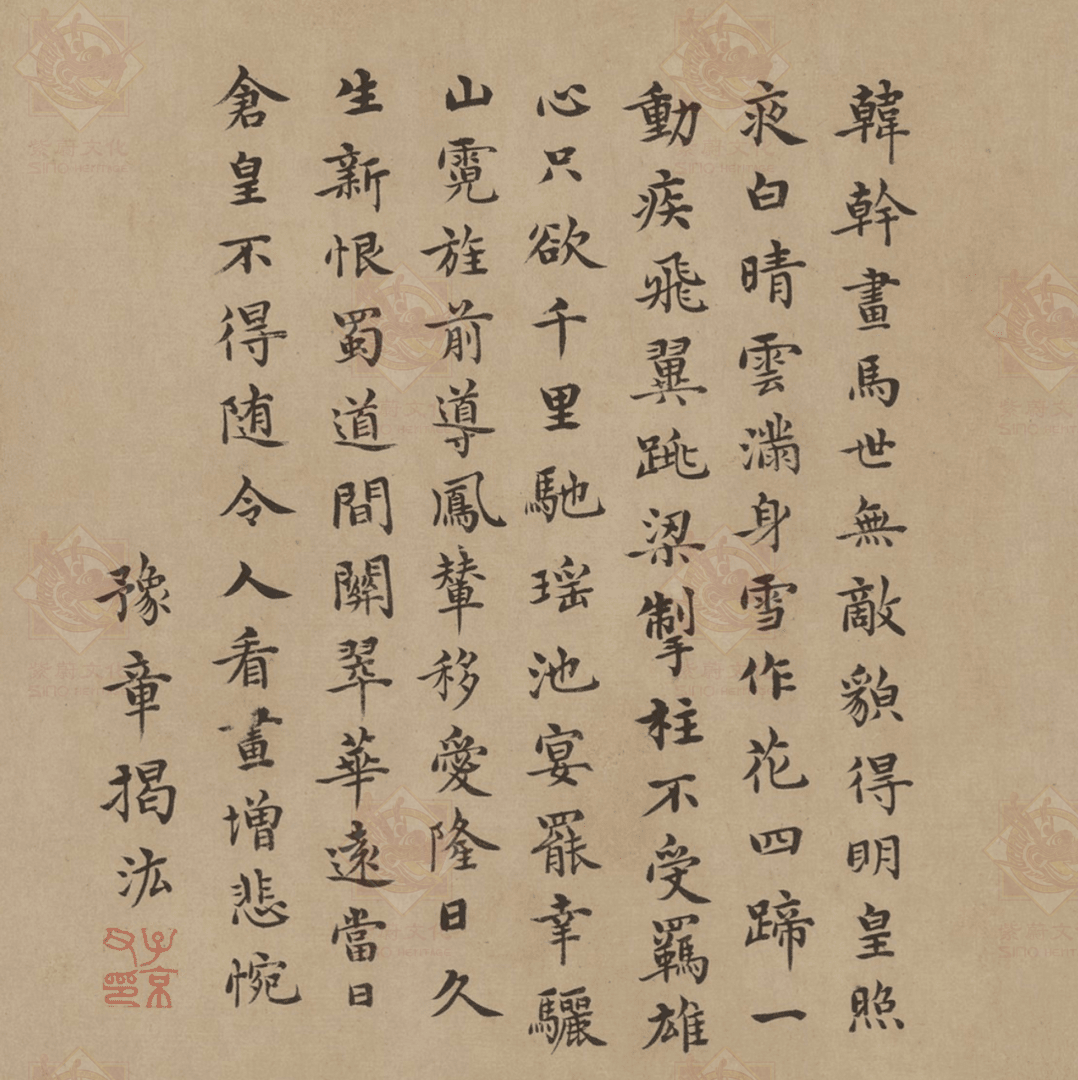 韓幹畫馬世無敵貌得明皇照
夜白晴雲滿身雪作花四蹄一
動疾飛翼跳梁掣柱不受羈雄
心只欲千里馳瑶池宴罷幸驪
山霓旌前導鳳輦移愛隆日久
生新恨蜀道間關翠華遠當日
倉皇不得随令人看畫增悲惋
豫章揭汯